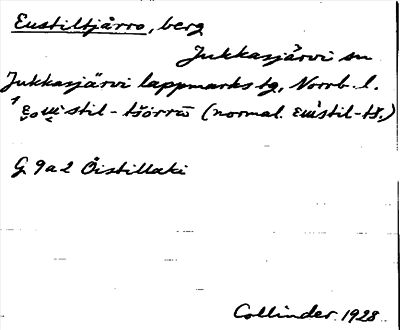 Eustiltjårro, berg
Jukkasjärvi sn
Jukkasjärvi lappmarks tg, Norrb. l.
stil-tšòrrō (normal. -tš.)
G 9a2 Õistillaki
Collinder 1928